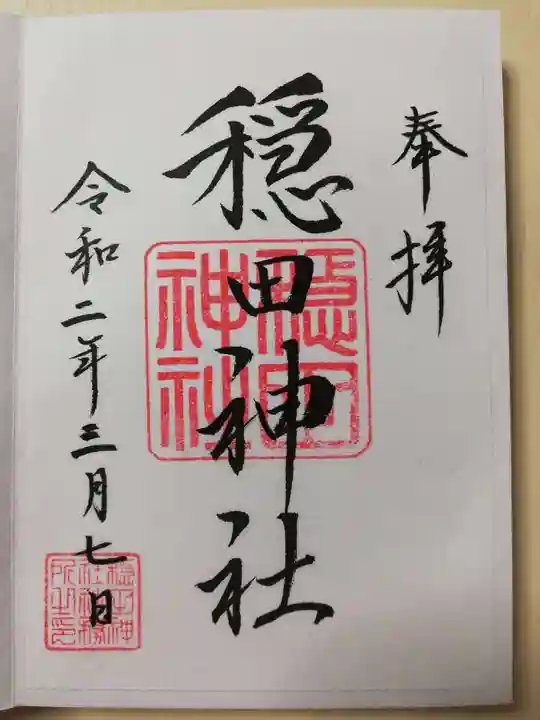 奉拝
穏田神社
穏田
神社
令和二年三月七日
穏田神
社社務
所之印